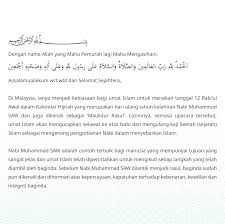 بسم الله الرحمن الرحيم
Dengan nama Allah yang Maha Pemurah lagi Maha Mengasihani.
الحمد لله رب العالمين والصلاة والسلام على رسول الله وعلى آله وصحبه أجمعين
Assalamualaikum wrt wbt dan Selamat Sejahtera,
Di Malaysia, ianya menjadi kebiasaan bagi umat Islam untuk meraikan tanggal 12 Rabi'ul
Awal dalam Kalendar Hijriah yang merupakan hari ulang tahun kelahiran Nabi Muhammad
SAW dan juga dikenali sebagai "Maulidur Rasul". Lazimnya, semasa upacara tersebut,
umat Islam akan mengucapkan selawat ke atas Nabi dan mengulang kaji Seerah (sejarah)
Islam sebagai mengenang pengorbanan Nabi dalam menyebarkan Islam.
Nabi Muhammad SAW adalah contoh terbaik bagi manusia yang mempunyai tujuan yang
sangat jelas dan umat Islam telah diperintahkan untuk mengikuti setiap langkah yang telah
diambil oleh beliau. Sebelum Nabi Muhammad SAW dilantik menjadi rasul, baginda sudah
pun dikenali dan dihormati atas kepercayaan, kepatuhan terhadap kebenaran, keadilan dan
integriti baginda.